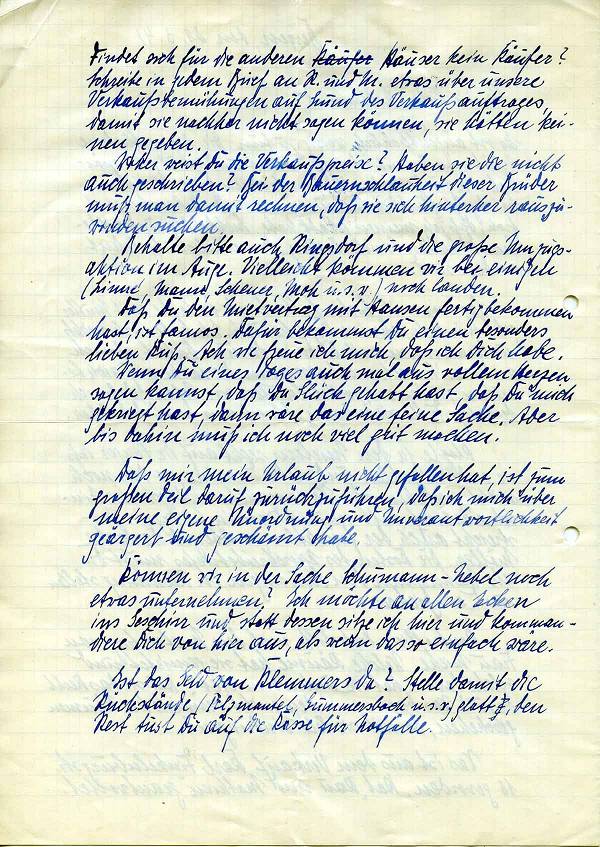 Findet sich für die anderen Käufer Häuser kein Käufer?
Schreibe in jedem Brief an K. und M. etwas über unsere
Verkaufsbemühungen auf Grund des Verkaufsauftrages,
damit sie nachher nicht sagen können, sie hätten kei-
nen gegeben.
Woher weist Du die Verkaufspreise? Haben sie die nicht
auch geschrieben? Bei der Bauernschlauheit dieser Brüder
muß man damit rechnen, daß sie sich hinterher rauszu-
winden suchen.
Behalte bitte auch Ringsdorf und die große Umzugs-
aktion im Auge. Vielleicht können wir bei einigen
(Linne, Mann, Scheuer, Moh u.s.v.) noch landen.
Daß Du den Mietvertrag mit Hansen fertig bekommen
hast, ist famos. Dafür bekommst Du einen besonders
lieben Kuß. Ach wie freue ich mich, daß ich Dich habe.
Wenn Du eines Tages auch mal aus vollem Herzen
sagen kannst, daß Du Glück gehabt hast, daß Du mich
gekriegt hast, dann wäre das eine feine Sache. Aber
bis dahin muß ich noch viel gut machen.
Daß mir mein Urlaub nicht gefallen hat, ist zum
großen Teil darauf zurückzuführen, daß ich mich über
meine eigene Unordnung und Unverantwortlichkeit
geärgert und geschämt habe.
Können wir in der Sache Schumann-Nebel noch
etwas unternehmen? Ich möchte an allen Ecken
ins Geschirr und statt dessen sitze ich hier und komman-
diere Dich von hier aus, als wenn das so einfach wäre.
Ist das Geld von Klemmers da? Stelle damit die
Rückstände (Pelzmantel, Gummersbach u.s.v.) glatt, den
Rest tust Du auf die Kasse für Notfälle.